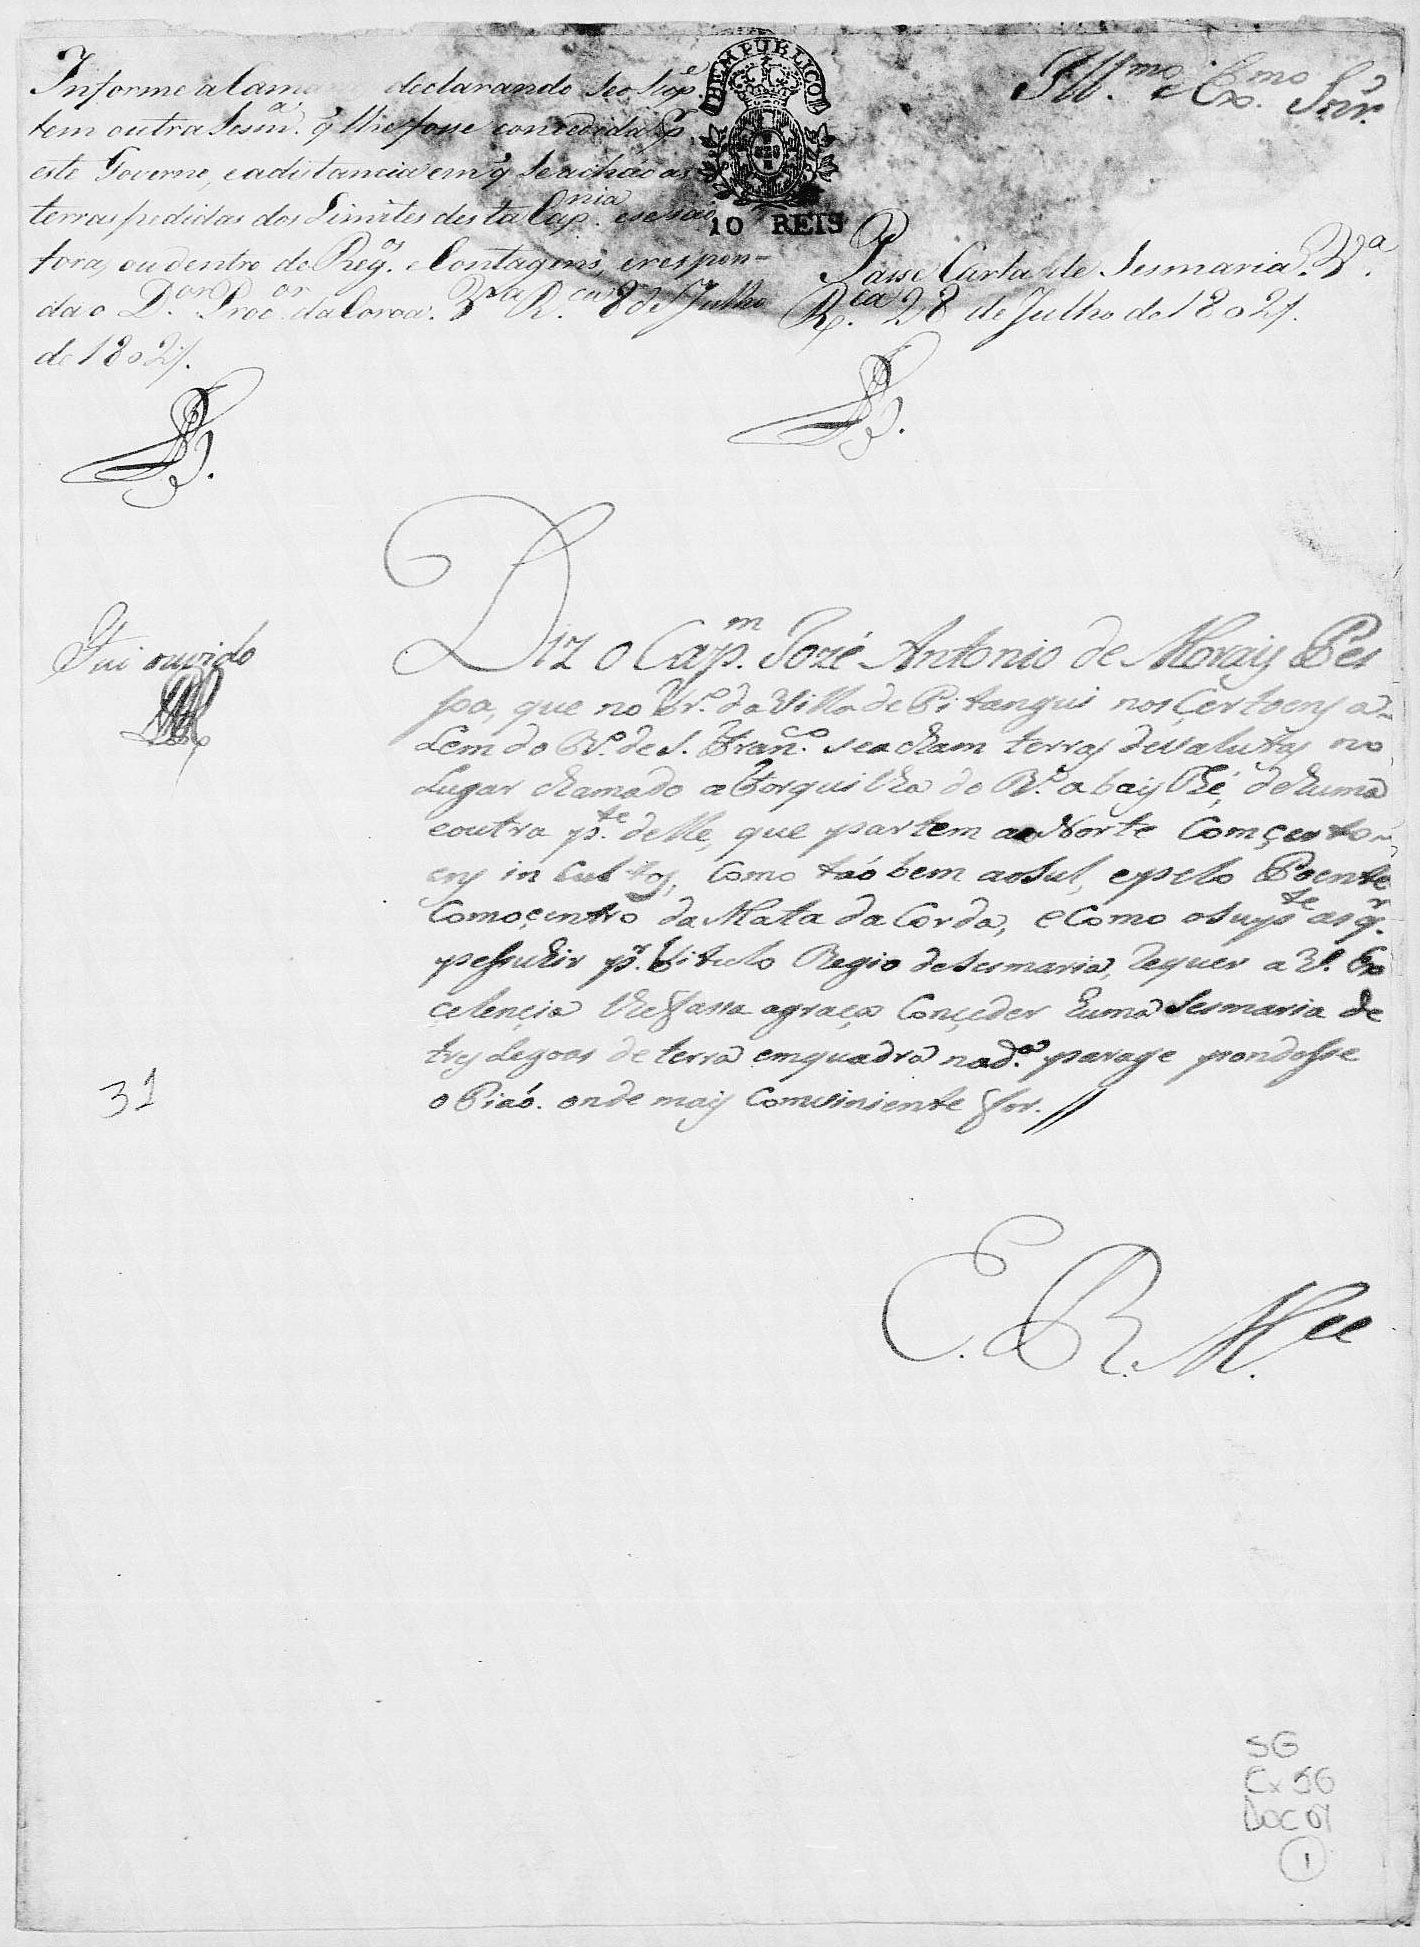 Ill.mo e Ex.mo Snr.
BEM PUBLICO
10 REIS
Informe a Camara declarando se o Sup.e
tem outra Sesm.a q̃ lhe fosse concedida p.
este Governo, e a distancia em q̃ se achão as
terras pedidas dos Limites desta Cap.nia e se são
fora, ou dentro de Reg.os e Contagens, e respon-
da o D.or Proc.or da Coroa. V.a R.ca 8 de Julho
de 1802.
Passe Carta de Sesmaria. V.a
R.ca 28 de Julho de 1802.
Fui ouvido
Diz o Cap.m Jozé Antonio de Morais Pes
soa, que no tr.o da Villa de Pitangui nos Certoens a-
Lem do R.o de S. Fran.co se acham terras devalutas no
Lugar chamado a Forquilha do R.o abaythé, de huma
e outra p.te delle, que partem ao Norte Com certo-
ens incultos, Como taó bem ao Sul, e pelo Poente
Com o çentro da Mata da Corda, e Como o Sup.te as q.r
pessuhir p.r titulo Regio de Sesmaria, Requer a V. Ex
celençia lhe fassa a graça Conçeder huma Sesmaria de
tres Legoas de terra em quadra na d.a parage pondosse
o Piaó. onde mais Comviniente for. //
E. R. M.cee
31
SG
Cx 56
Doc 01
1